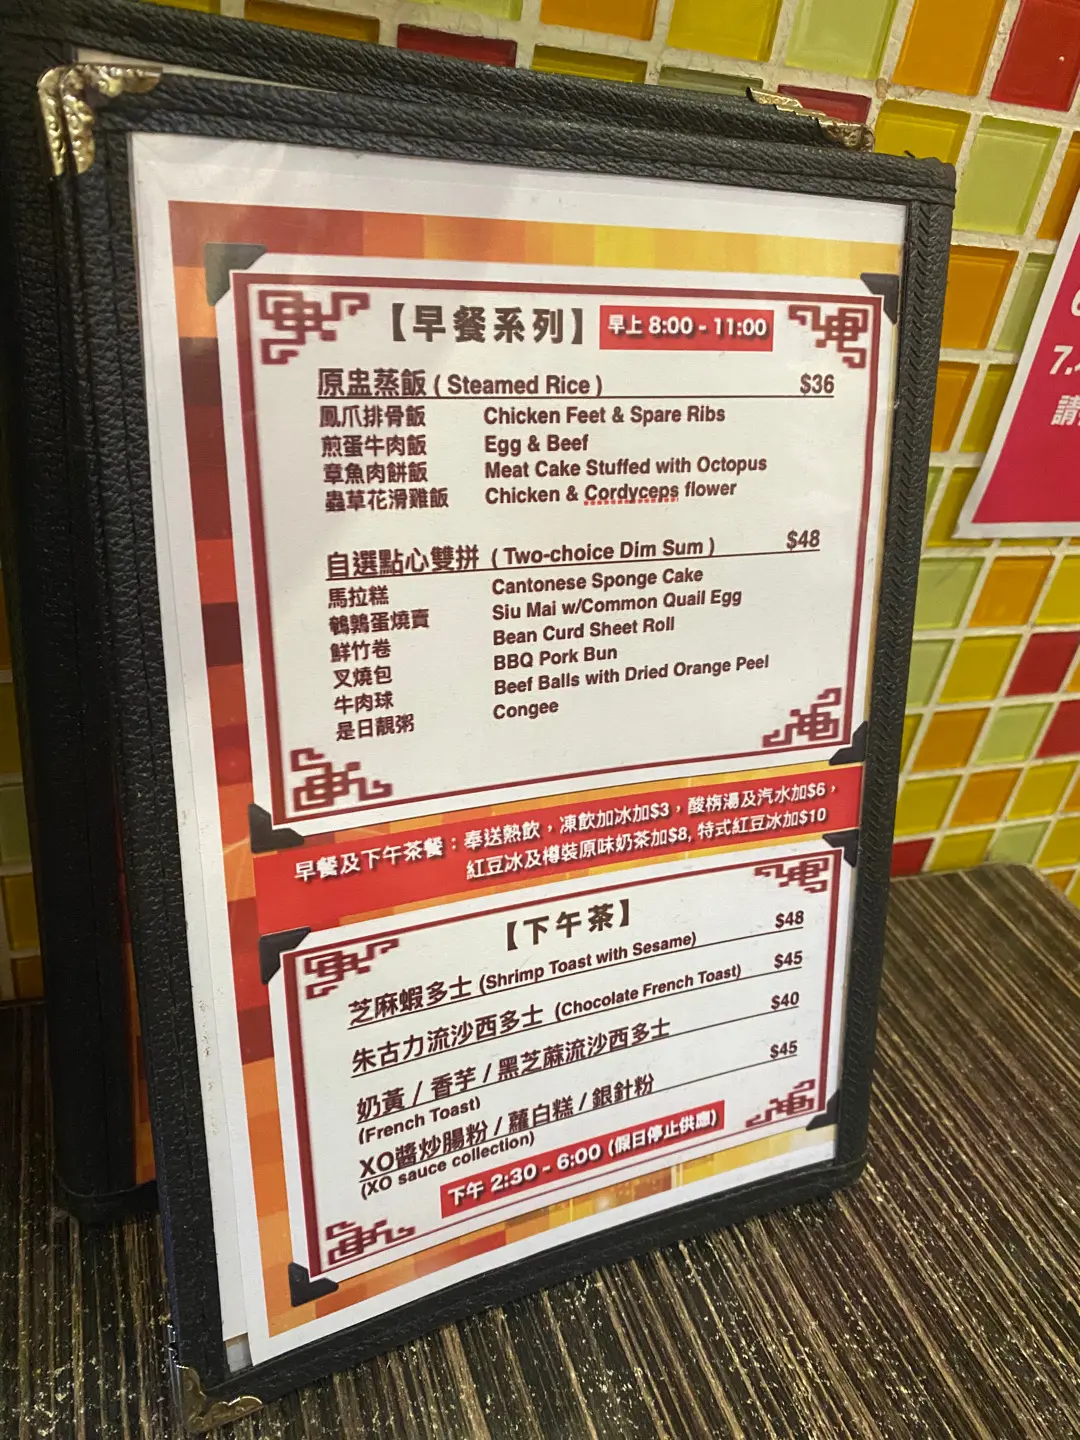 【早餐系列】 早上 8:00 - 11:00
原盅蒸飯 ( Steamed Rice ) $36
鳳爪排骨飯 Chicken Feet & Spare Ribs
煎蛋牛肉飯 Egg & Beef
章魚肉餅飯 Meat Cake Stuffed with Octopus
蟲草花滑雞飯 Chicken & Cordyceps flower
自選點心雙拼 ( Two-choice Dim Sum ) $48
馬拉糕 Cantonese Sponge Cake
鵪鶉蛋燒賣 Siu Mai w/Common Quail Egg
鮮竹卷 Bean Curd Sheet Roll
叉燒包 BBQ Pork Bun
牛肉球 Beef Balls with Dried Orange Peel
是日靚粥 Congee
早餐及下午茶餐：奉送熱飲，凍飲加冰加$3，酸梅湯及汽水加$6，
紅豆冰及樽裝原味奶茶加$8, 特式紅豆冰加$10
【下午茶】
芝麻蝦多士 (Shrimp Toast with Sesame) $48
朱古力流沙西多士 (Chocolate French Toast) $45
奶黃 / 香芋 / 黑芝蔴流沙西多士 $40
(French Toast)
XO醬炒腸粉 / 蘿白糕 / 銀針粉 $45
(XO sauce collection)
下午 2:30 - 6:00 (假日停止供應)
7.
請